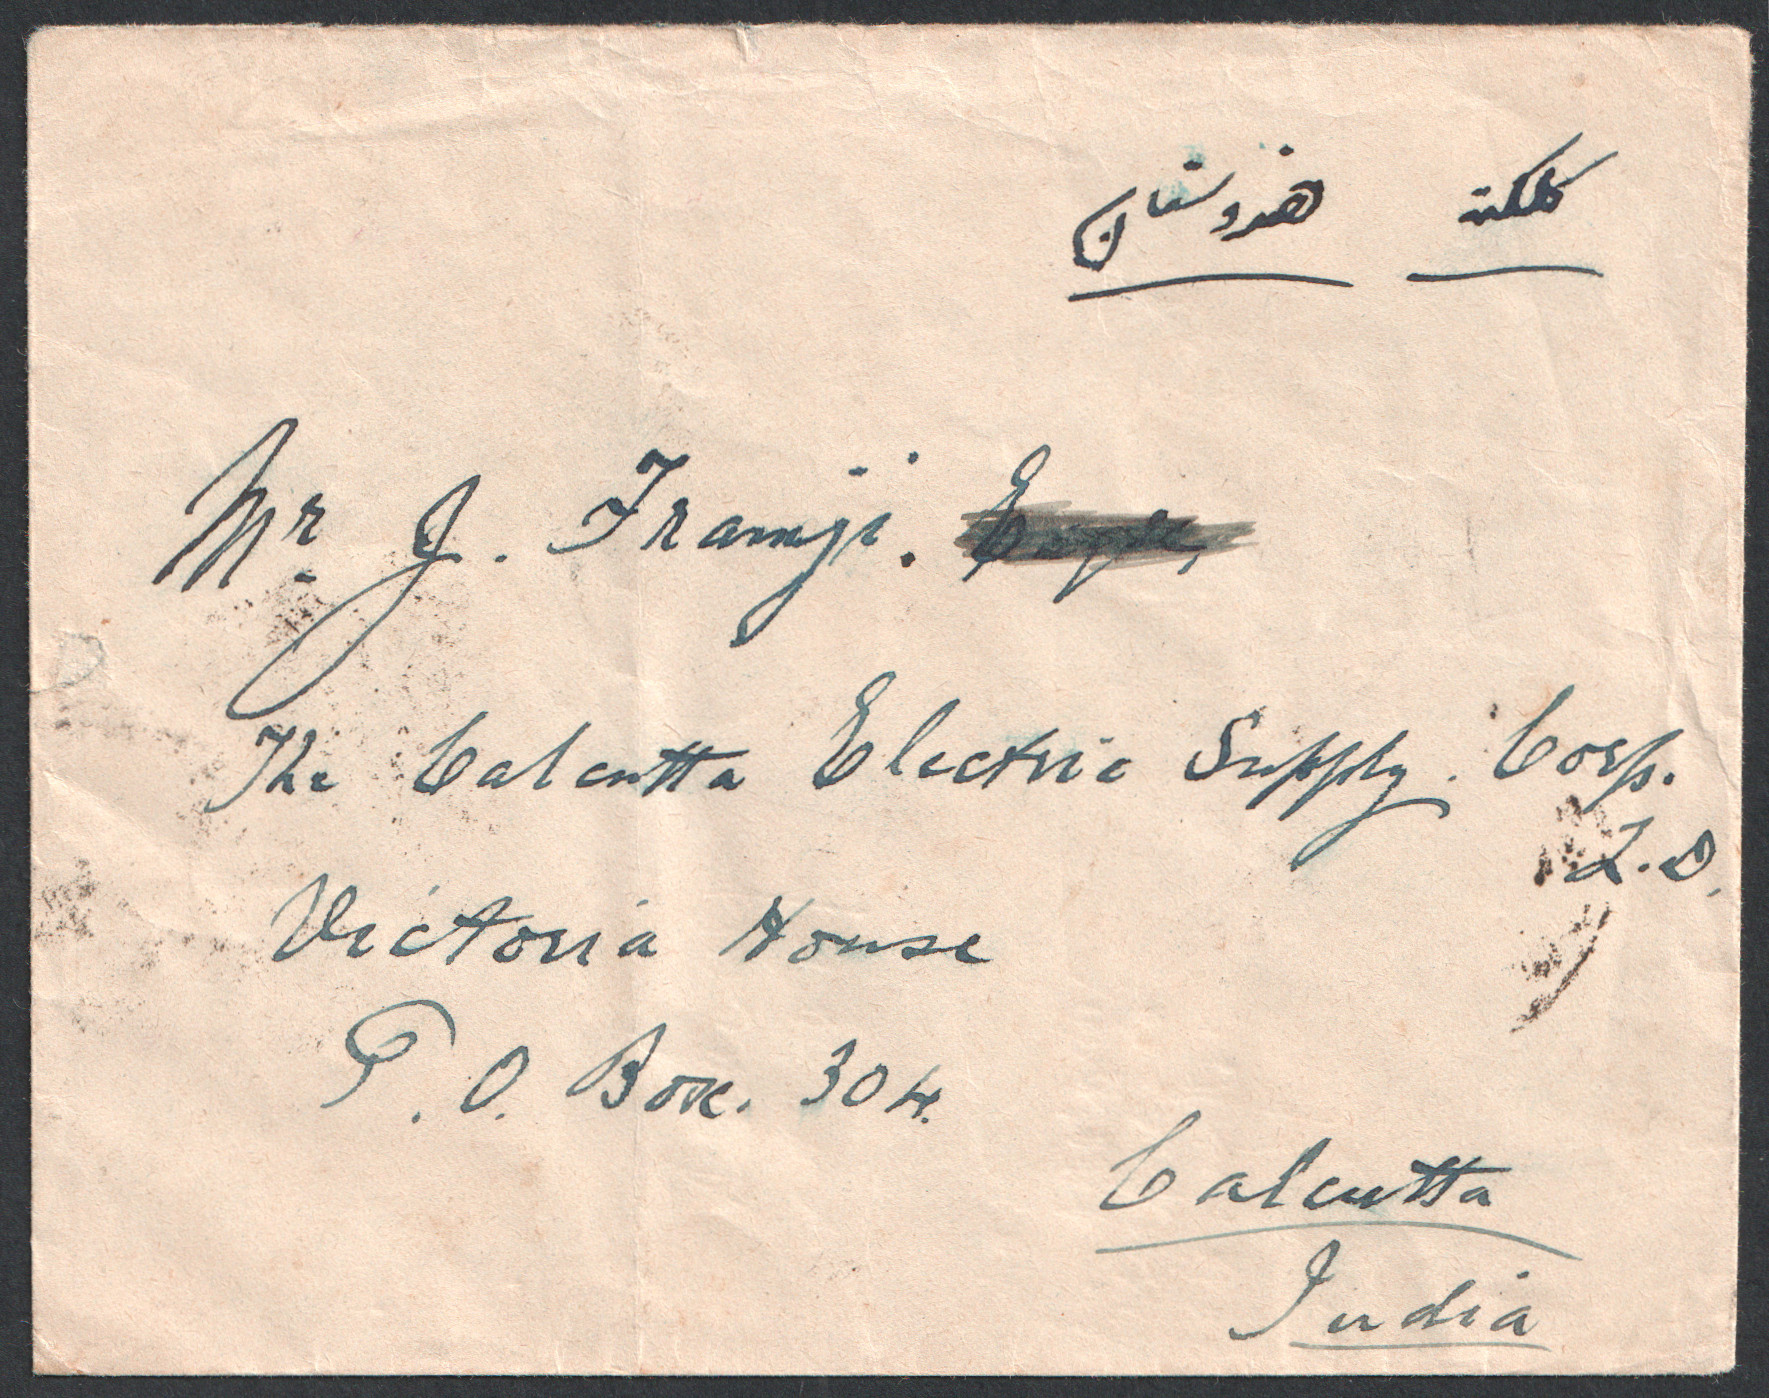 كلكته هندوستان
Mr J. Framji.
The Calcutta Electric Supply. Corp.
L.D.
Victoria House
P.O. Box. 304.
Calcutta
India